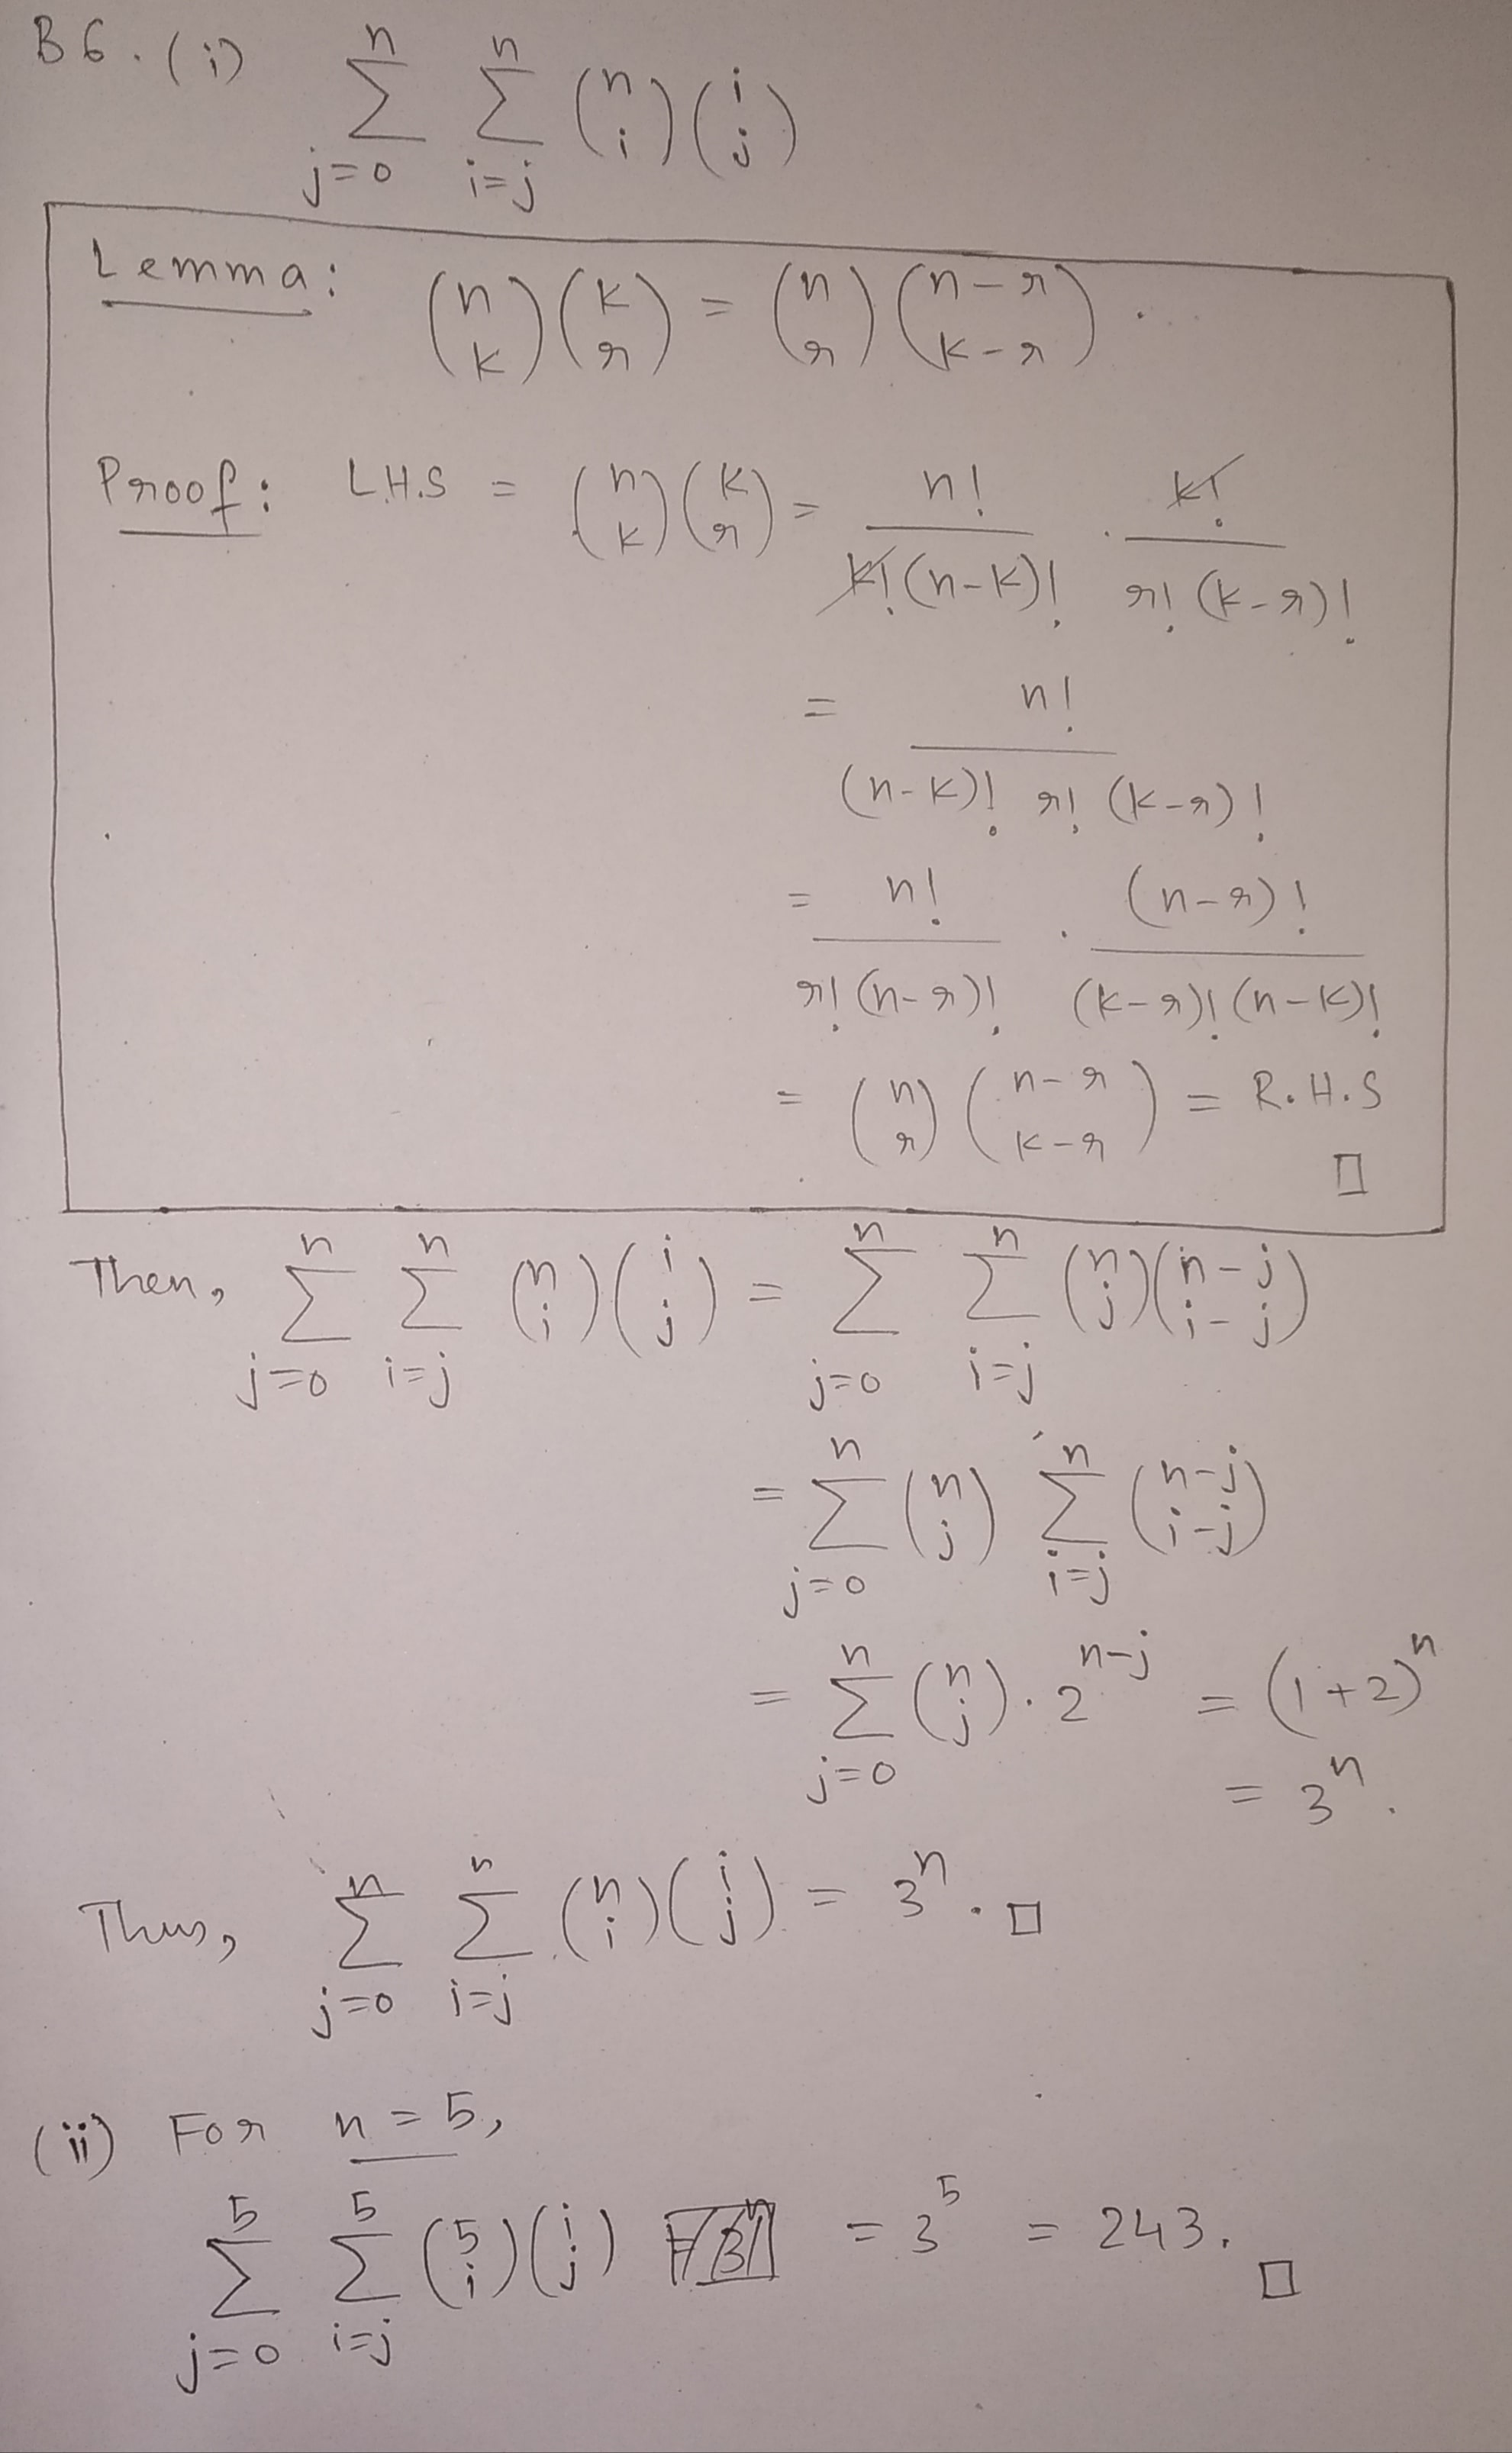 B6. (i) $\sum_{j=0}^{n} \sum_{i=j}^{n} \binom{n}{i} \binom{i}{j}$
Lemma: $\binom{n}{k} \binom{k}{r} = \binom{n}{r} \binom{n-r}{k-r}$.
Proof: L.H.S = $\binom{n}{k} \binom{k}{r} = \frac{n!}{\cancel{k!}(n-k)!} \cdot \frac{\cancel{k!}}{r!(k-r)!}$
$= \frac{n!}{(n-k)! r! (k-r)!}$
$= \frac{n!}{r!(n-r)!} \cdot \frac{(n-r)!}{(k-r)!(n-k)!}$
$= \binom{n}{r} \binom{n-r}{k-r}$ = R.H.S
□
Then, $\sum_{j=0}^{n} \sum_{i=j}^{n} \binom{n}{i} \binom{i}{j} = \sum_{j=0}^{n} \sum_{i=j}^{n} \binom{n}{j} \binom{n-j}{i-j}$
$= \sum_{j=0}^{n} \binom{n}{j} \sum_{i=j}^{n} \binom{n-j}{i-j}$
$= \sum_{j=0}^{n} \binom{n}{j} \cdot 2^{n-j} = (1+2)^n$
$= 3^n$.
Thus, $\sum_{j=0}^{n} \sum_{i=j}^{n} \binom{n}{i} \binom{i}{j} = 3^n$. □
(ii) For n = 5,
$\sum_{j=0}^{5} \sum_{i=j}^{5} \binom{5}{i} \binom{i}{j} = 3^5 = 243$. □